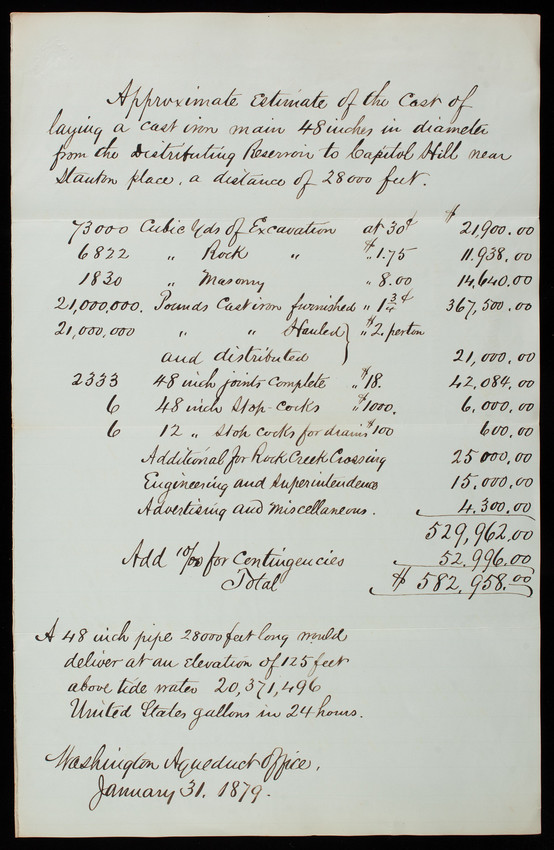 Approximate Estimate of the Cost of
laying a cast iron main 48 inches in diameter
from the Distributing Reservoir to Capitol Hill near
Stanton place, a distance of 28000 feet.
73000 Cubic Yds of Excavation at 30¢ $21,900.00
6822 " Rock " " $1.75 11,938.00
1830 " Masonry " 8.00 14,640.00
21,000,000. Pounds Cast iron furnished " 1 3/4¢ 367,500.00
21,000,000 " " Hauled } " $2. per ton
and distributed 21,000.00
2333 48 inch joints complete " $18. 42,084.00
6 48 inch Stop-cocks " $1000. 6,000.00
6 12 " Stop cocks for drains $100 600.00
Additional for Rock Creek Crossing 25000.00
Engineering and Superintendence 15,000.00
Advertising and Miscellaneous. 4.300.00
529,962.00
Add 10% for Contingencies 52,996.00
Total $582,958.00
A 48 inch pipe 28000 feet long would
deliver at an elevation of 125 feet
above tide water 20,371,496
United States gallons in 24 hours.
Washington Aqueduct Office,
January 31. 1879.